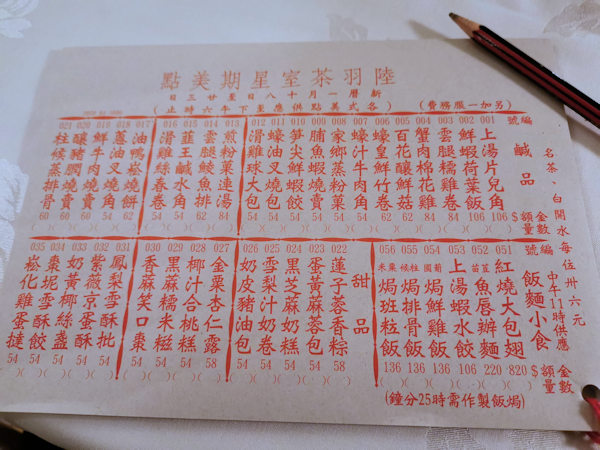 陸羽茶室星期美點
新曆一月十八日至廿三日
(各式美點供應至下午六時止)
(另加一服務費)
名茶、白開水每位卅六元
編號
鹹品
金額 $
數量
001 上湯片兒角 106
002 鮮蝦荷葉飯 106
003 雲腿糯雞卷 84
004 蟹肉棉花雞 84
005 百花釀鮮菇 62
006 蠔皇鮮竹卷 62
007 蠔汁牛肉角 54
008 家鄉蒸粉菓 54
009 脯魚蝦燒賣 54
010 筍尖鮮蝦餃 54
011 蠔油叉燒包 54
012 滑雞球大包 54
013 煎粉菓連湯 84
014 雲腿鯪魚排 62
015 韮王鹹水角 54
016 滑雞絲春卷 54
017 油鴨崧燒餅 54
018 蔥油叉燒角 54
019 鮮牛肉燒賣 54
020 釀豬膶燒賣 60
021 柱候蒸排骨 60
編號
飯麵小食
中午11時供應
金額 $
數量
051 紅燒大包翅 820
052 魚唇辦麵 220
053 上湯蝦水餃 106
054 葡國焗鮮雞飯 136
055 柱候焗排骨飯 136
056 粟米焗班粒飯 136
(焗飯製作需時25分鐘)
甜品
022 蓮子蓉香粽 58
023 蛋黃麻蓉包 54
024 黑芝麻奶糕 54
025 雪梨汁奶卷 54
026 奶皮豬油包 54
027 金粟杏仁露 58
028 椰汁合桃糕 54
029 黑麻糯米糍 54
030 香麻笑口棗 54
031 鳳梨雪酥批 54
032 紫微京蛋酥 54
033 奶黃椰絲盞 54
034 棗坭雪酥餅 54
035 崧化雞蛋撻 54